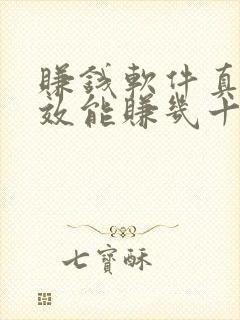 賺錢軟件真
效能賺幾十
七寶酥